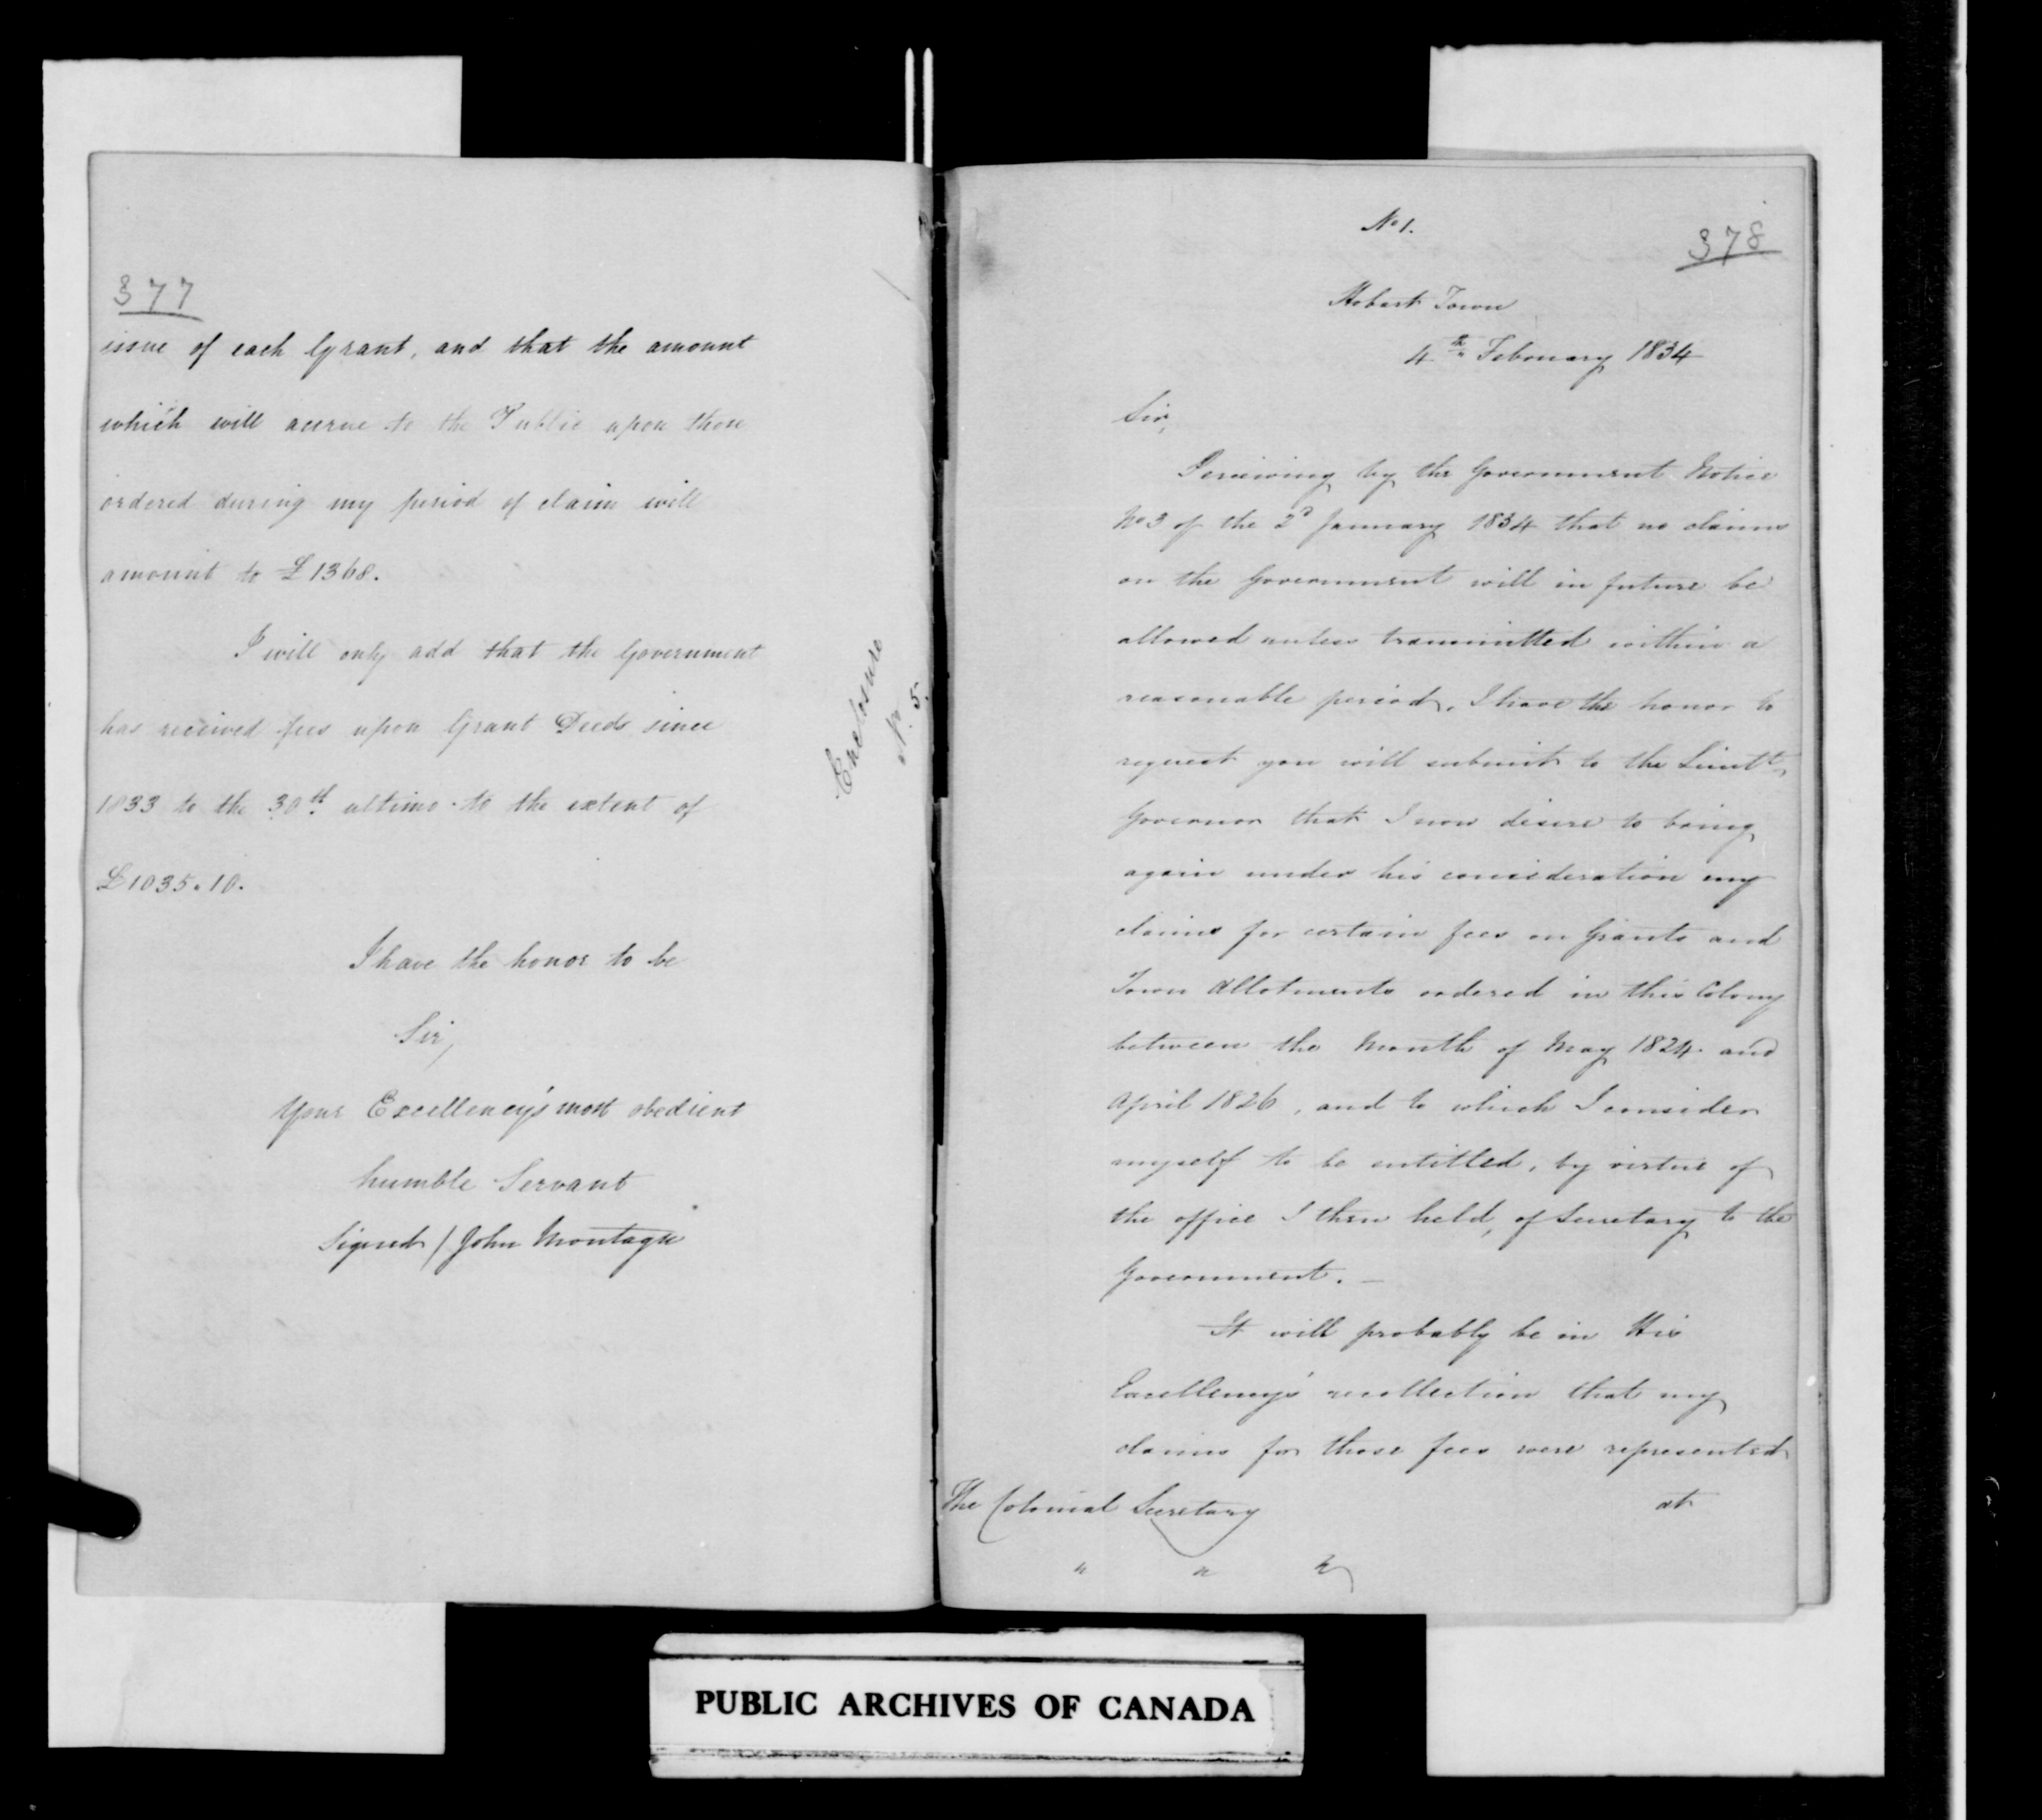 377
issue of each Grant, and that the amount
which will accrue to the Public upon those
ordered during my period of claim will
amount to £1368.
I will only add that the Government
has received fees upon Grant Deeds since
1833 to the 30th ultimo to the extent of
£1035.10.
I have the honor to be
Sir,
Your Excellency's most obedient
humble Servant
Signed / John Montagu
Enclosure
No. 5.
No 1.
378
Hobart Town
4th February 1834
Sir,
Perceiving by the Government Notice
No 3 of the 2d January 1834 that no claims
on the Government will in future be
allowed unless transmitted within a
reasonable period, I have the honor to
request you will submit to the Lieutt
Governor that I now desire to bring
again under his consideration my
claims for certain fees on Grants and
Town Allotments ordered in this Colony
between the Month of May 1824 and
April 1826, and to which I consider
myself to be entitled, by virtue of
the office I then held, of Secretary to the
Government. —
It will probably be in His
Excellency's recollection that my
claims for those fees were represented
at
The Colonial Secretary
" "
PUBLIC ARCHIVES OF CANADA